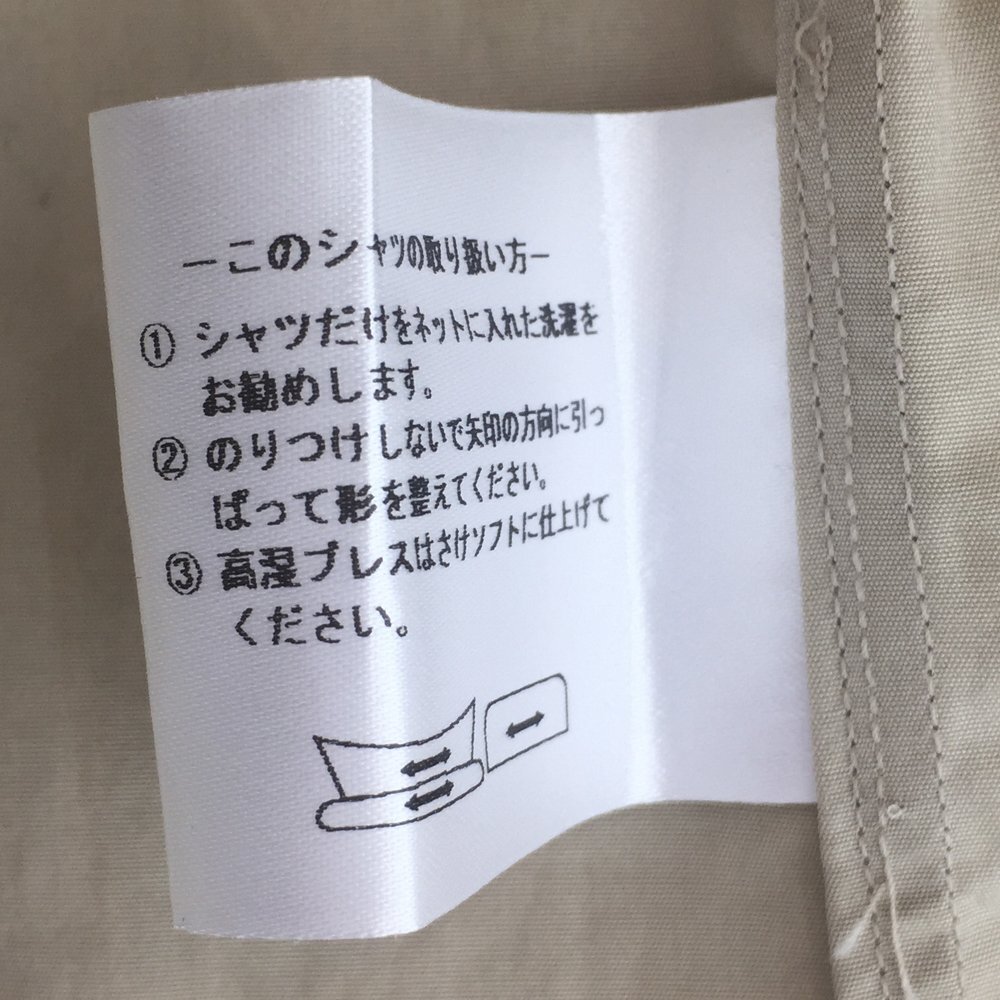 ―このシャツの取り扱い方―
① シャツだけをネットに入れた洗濯を
お勧めします。
② のりつけしないで矢印の方向に引っ
ぱって形を整えてください。
③ 高湿プレスはさけソフトに仕上げて
ください。